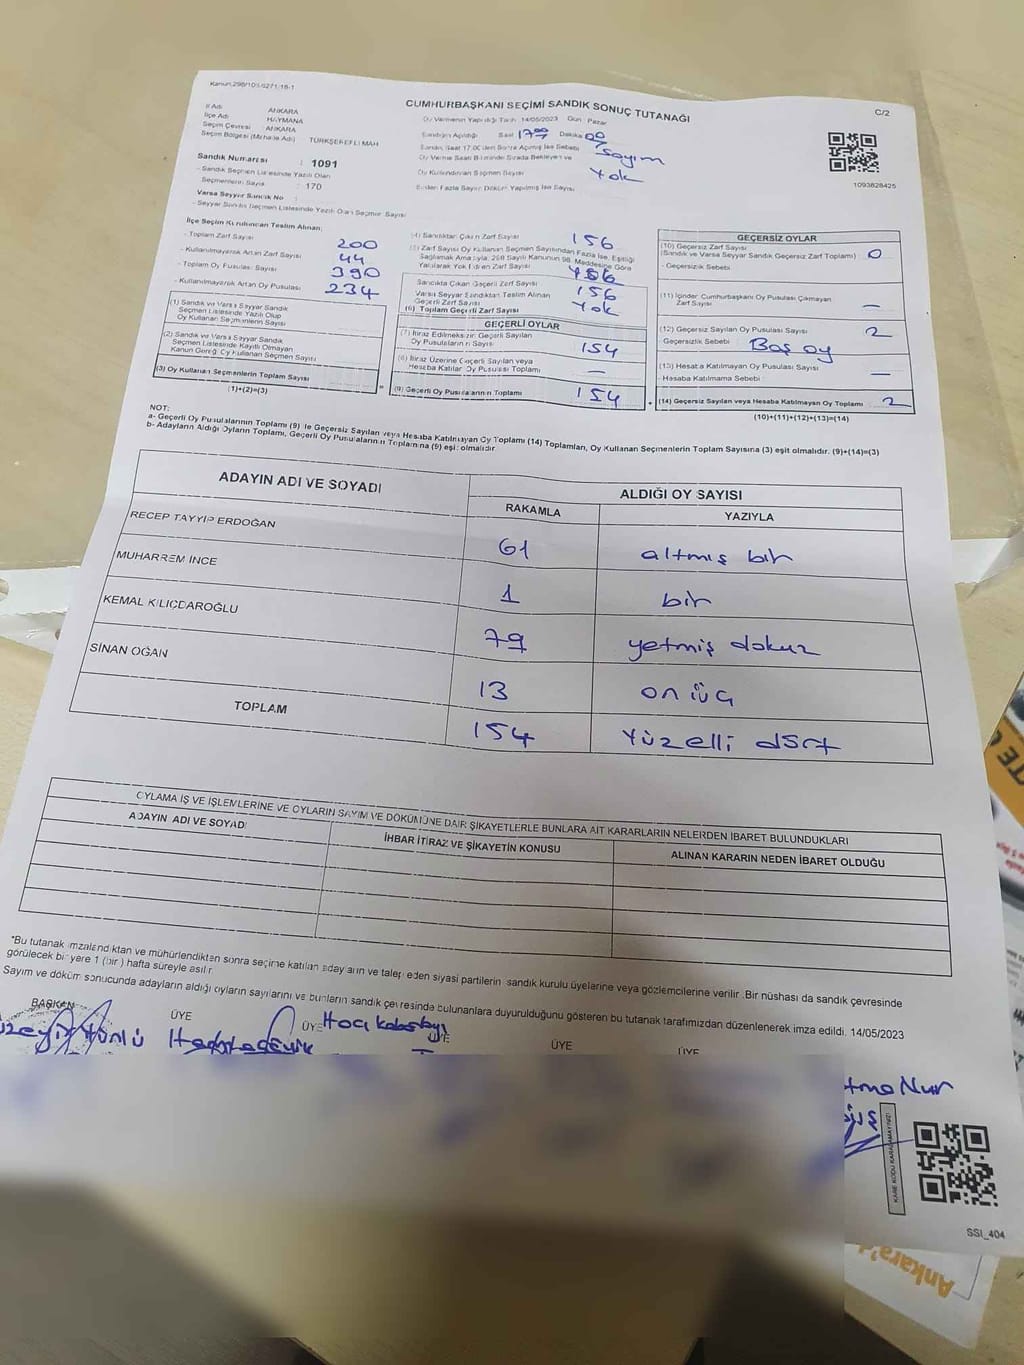 Kanun:298/105/6271/18-1
CUMHURBAŞKANI SEÇİMİ SANDIK SONUÇ TUTANAĞI
C/2
İl Adı ANKARA
İlçe Adı HAYMANA
Seçim Çevresi ANKARA
Seçim Bölgesi (Mahalle Adı) TÜRKŞEREFLİ MAH
Sandık Numarası : 1091
- Sandık Seçmen Listesinde Yazılı Olan
Seçmenlerin Sayısı : 170
Varsa Seyyar Sandık No :
- Seyyar Sandık Seçmen Listesinde Yazılı Olan Seçmen Sayısı
Oy Vermenin Yapıldığı Tarih 14/05/2023 Gün: Pazar
Sandığın Açıldığı Saat 17 00 Dakika 00
Sandık Saat 17:00'den Sonra Açılmış İse Sebebi Sayım
Oy Verme Saati Bitiminde Sırada Bekleyen ve
Oy Kullandırılan Seçmen Sayısı Yok
Birden Fazla Sayım Döküm Yapılmış İse Sayısı
1093828425
İlçe Seçim Kurulundan Teslim Alınan;
- Toplam Zarf Sayısı 200
- Kullanılmayarak Artan Zarf Sayısı 44
- Toplam Oy Pusulası Sayısı 390
- Kullanılmayarak Artan Oy Pusulası 234
(1) Sandık ve Varsa Seyyar Sandık
Seçmen Listesinde Yazılı Olup
Oy Kullanan Seçmenlerin Sayısı
(2) Sandık ve Varsa Seyyar Sandık
Seçmen Listesinde Kayıtlı Olmayan
Kanun Gereği Oy Kullanan Seçmen Sayısı
(3) Oy Kullanan Seçmenlerin Toplam Sayısı
(1)+(2)=(3)
(4) Sandıktan Çıkan Zarf Sayısı 156
(5) Zarf Sayısı Oy Kullanan Seçmen Sayısından Fazla İse, Eşitliği
Sağlamak Amacıyla, 298 Sayılı Kanunun 98. Maddesine Göre
Yakılarak Yok Edilen Zarf Sayısı
Sandıkta Çıkan Geçerli Zarf Sayısı 156
Varsa Seyyar Sandıktan Teslim Alınan
Geçerli Zarf Sayısı Yok
(6) Toplam Geçerli Zarf Sayısı
GEÇERLİ OYLAR
(7) İtiraz Edilmeksizin Geçerli Sayılan
Oy Pusulalarının Sayısı 154
(8) İtiraz Üzerine Geçerli Sayılan veya
Hesaba Katılan Oy Pusulası Toplamı —
(9) Geçerli Oy Pusulalarının Toplamı 154
GEÇERSİZ OYLAR
(10) Geçersiz Zarf Sayısı
(Sandık ve Varsa Seyyar Sandık Geçersiz Zarf Toplamı) 0
- Geçersizlik Sebebi
(11) İçinden Cumhurbaşkanı Oy Pusulası Çıkmayan
Zarf Sayısı —
(12) Geçersiz Sayılan Oy Pusulası Sayısı 2
Geçersizlik Sebebi Boş oy
(13) Hesaba Katılmayan Oy Pusulası Sayısı —
- Hesaba Katılmama Sebebi
(14) Geçersiz Sayılan veya Hesaba Katılmayan Oy Toplamı 2
(10)+(11)+(12)+(13)=(14)
NOT:
a- Geçerli Oy Pusulalarının Toplamı (9) ile Geçersiz Sayılan veya Hesaba Katılmayan Oy Toplamı (14) Toplamları, Oy Kullanan Seçmenlerin Toplam Sayısına (3) eşit olmalıdır. (9)+(14)=(3)
b- Adayların Aldığı Oyların Toplamı, Geçerli Oy Pusulalarının Toplamına (9) eşit olmalıdır.
ADAYIN ADI VE SOYADI
ALDIĞI OY SAYISI
RAKAMLA YAZIYLA
RECEP TAYYİP ERDOĞAN 61 altmış bir
MUHARREM İNCE 1 bir
KEMAL KILIÇDAROĞLU 79 yetmiş dokuz
SİNAN OĞAN 13 on üç
TOPLAM 154 Yüzelli dört
OYLAMA İŞ VE İŞLEMLERİNE VE OYLARIN SAYIM VE DÖKÜMÜNE DAİR ŞİKAYETLERLE BUNLARA AİT KARARLARIN NELERDEN İBARET BULUNDUKLARI
ADAYIN ADI VE SOYADI
İHBAR İTİRAZ VE ŞİKAYETİN KONUSU
ALINAN KARARIN NEDEN İBARET OLDUĞU
*Bu tutanak imzalandıktan ve mühürlendikten sonra seçime katılan adayların ve talep eden siyasi partilerin sandık kurulu üyelerine veya gözlemcilerine verilir. Bir nüshası da sandık çevresinde
görülecek bir yere 1 (bir) hafta süreyle asılır.
Sayım ve döküm sonucunda adayların aldığı oyların sayılarını ve bunların sandık çevresinde bulunanlara duyurulduğunu gösteren bu tutanak tarafımızdan düzenlenerek imza edildi. 14/05/2023
BAŞKAN ÜYE ÜYE ÜYE ÜYE ÜYE
KARE KODU KARALAMAYINIZ!
SSI_404
Ankara'd